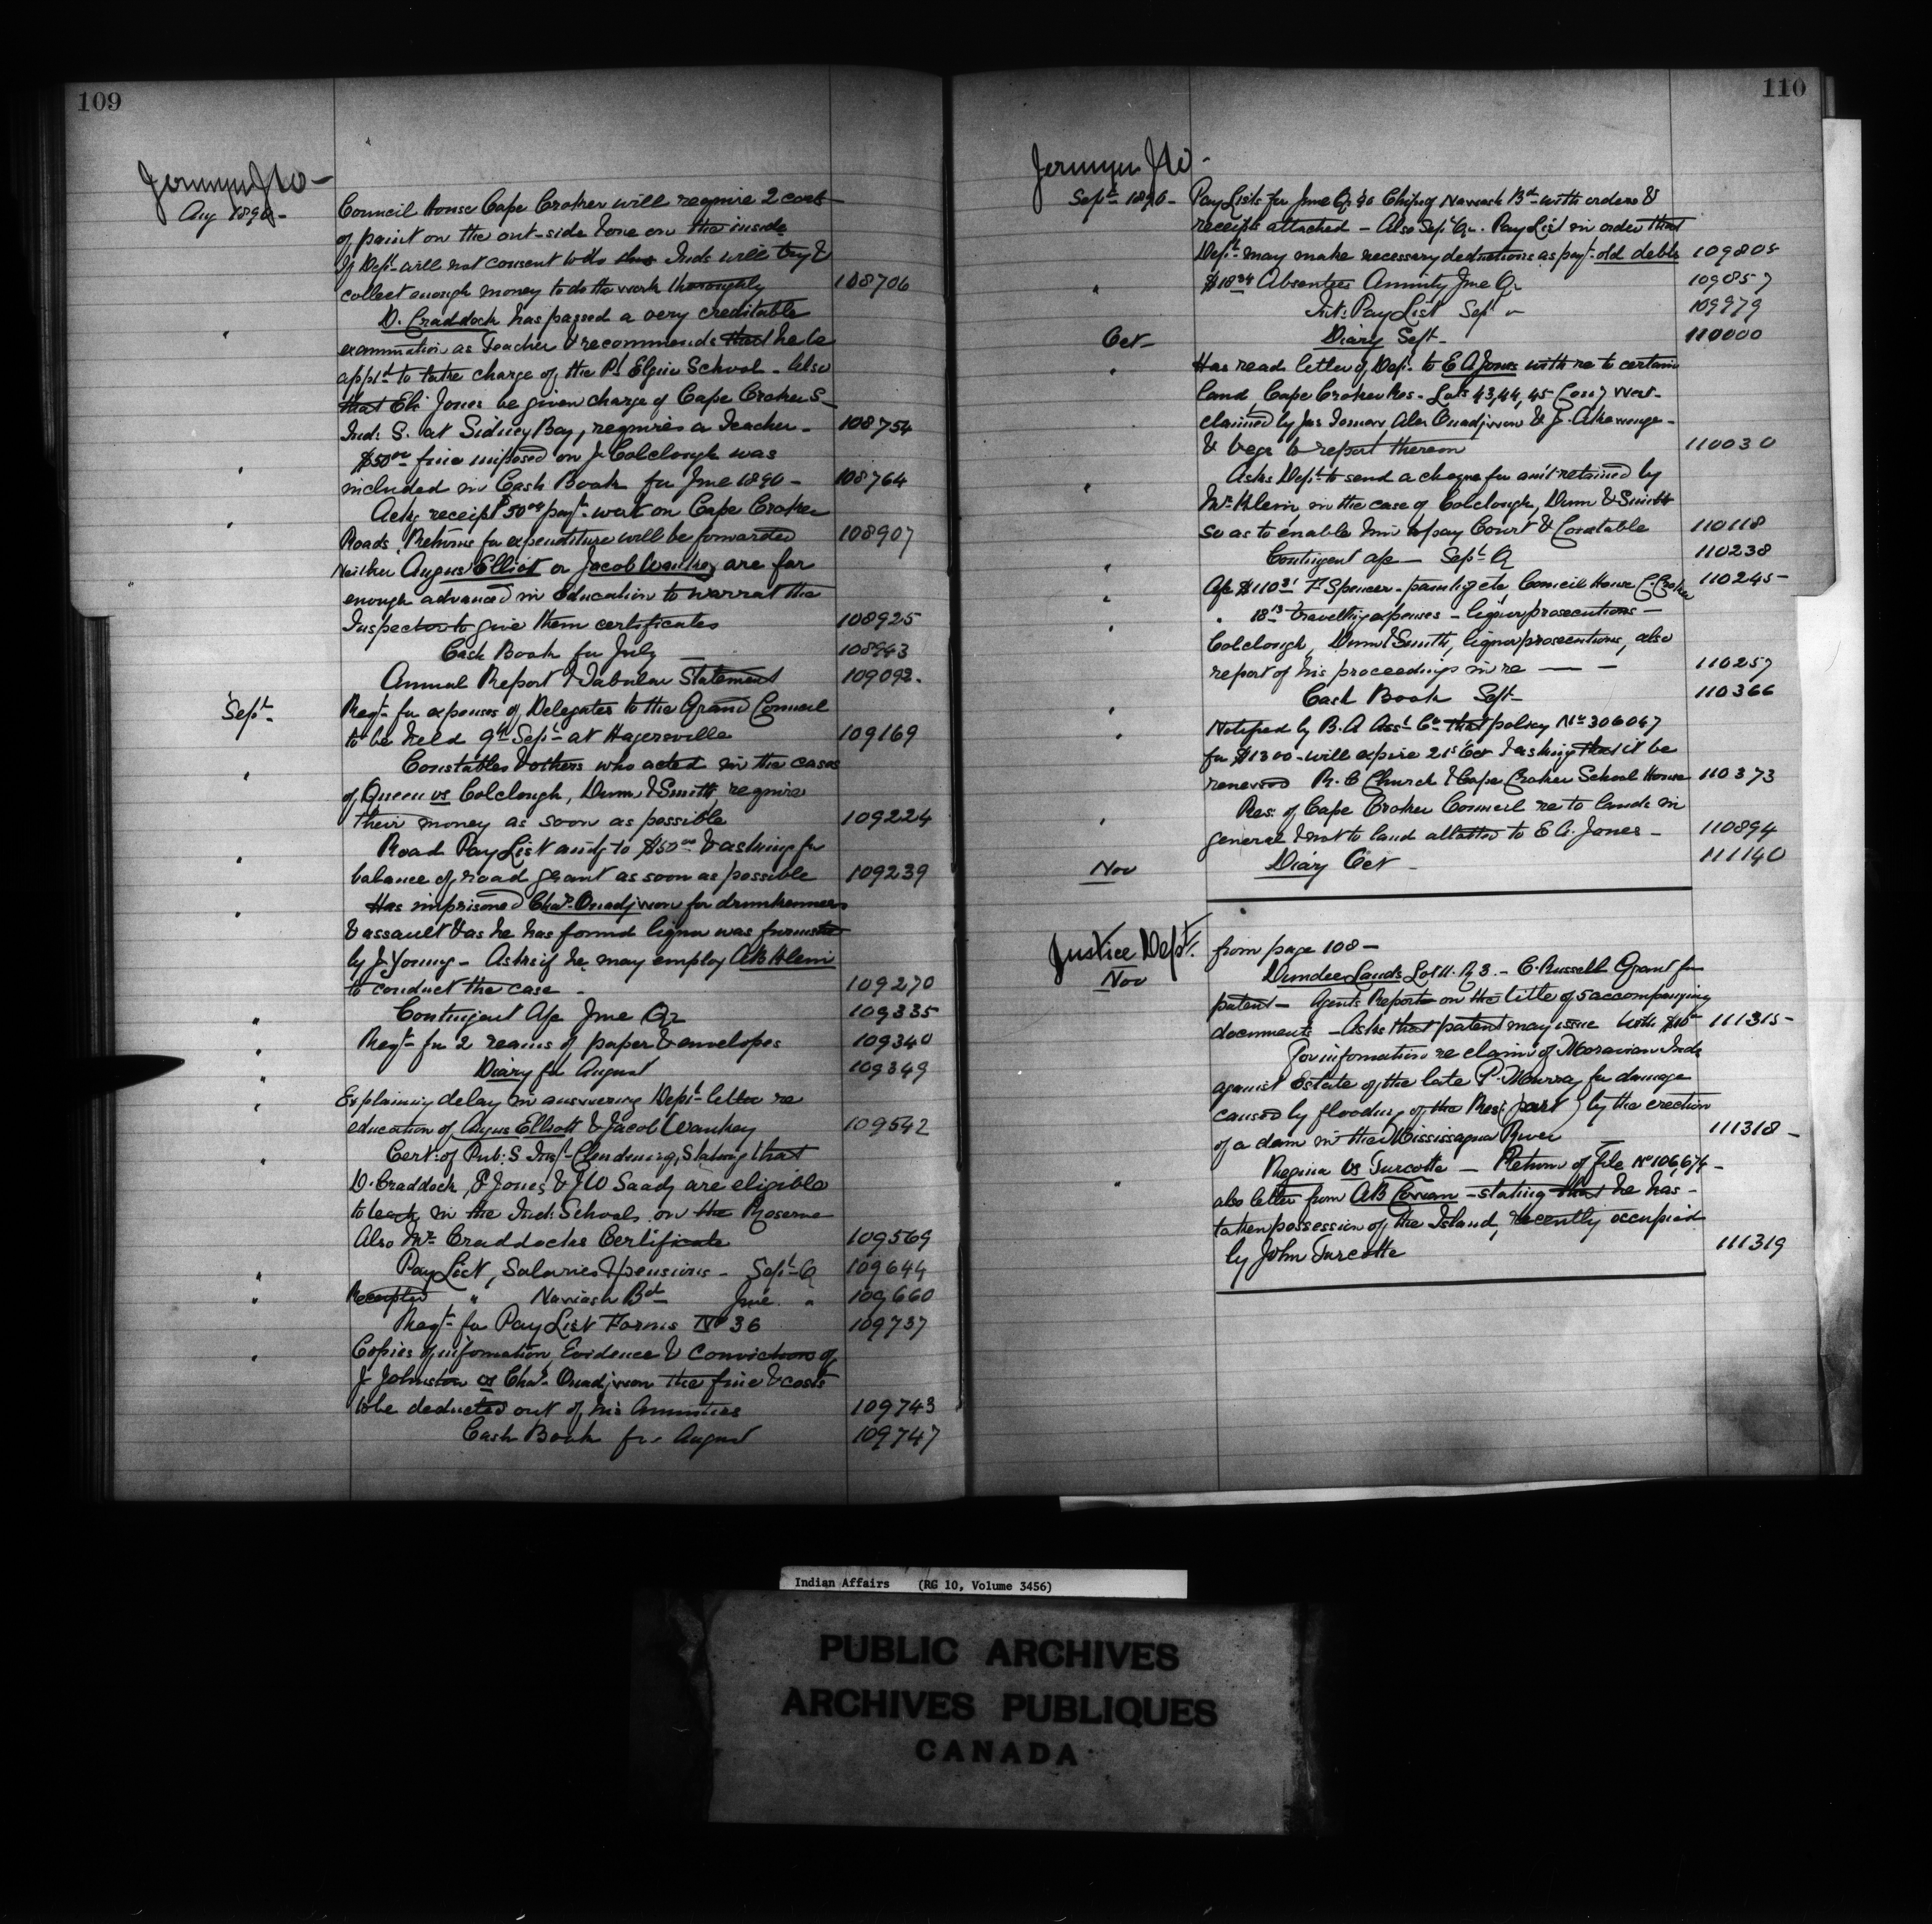 109
Jermyn JW -
Aug 1890 -
Council House Cape Croker will require 2 coats
of paint on the out-side & one on the inside
If Dept will not consent to do this Inds will try &
collect enough money to do the work thoroughly 108706
" D. Craddock has passed a very creditable
examination as Teacher & recommends that he be
appt'd to take charge of the Pt Elgin School - Also
that Eli Jones be given charge of Cape Croker S -
Ind: S. at Sidney Bay, requires a Teacher - 108754
" $50.00 fine imposed on J. Colclough was
included in Cash Book for June 1890 - 108764
" Ackg receipt $50.00 payt work on Cape Croker
Roads, Returns for expenditure will be forwarded 108907
" Neither Angus Elliot or Jacob Waukey are far
enough advanced in Education to warrat the
Inspector to give them certificates 108925
Cash Book for July 108943
Annual Report & Tabular Statement 109092.
Sept Reqt for expenses of Delegates to the Grand Council
to be held 9th Sept at Hagersville 109169
" Constables & others who acted in the cases
of Queen vs Colclough, Dunn & Smith, require
their money as soon as possible 109224
" Road Pay List amtg to $50.00 & asking for
balance of road grant as soon as possible 109239
" Has imprisoned Chas Quadjiwon for drunkenness
& assault & as he has found liquor was furnished
by J. Young - Asks if he may employ AB Klein
to conduct the case - 109270
" Contingent A/c June Qr 109335
" Reqt for 2 reams of paper & envelopes 109340
" Diary for August 109349
" Explaining delay in answering Dept letter re
education of Angus Elliott & Jacob Waukey 109542
" Cert: of Pub: S. Insp Clendening, Stating that
D. Craddock, E Jones, & JW Saady are eligible
to teach in the Ind: Schools on the Reserve
Also Mr Craddocks Certificate 109569
" Pay List, Salaries & pensions - Sept Q 109644
" Receipted " Nawash Bd June " 109660
Reqt for Pay List Forms No 36 109737
" Copies of information, Evidence & Conviction of
J Johnston vs Chas Quadjiwon the fine & costs
to be deducted out of his Annuities 109743
Cash Book for August 109747
110
Jermyn JW -
Sept 1890 - Pay Lists for June Qr '90 Chips of Nawash Bd with orders &
receipts attached - Also Sept Qr. Pay List in order that
Dept may make necessary deductions as payt old debts 109805
" Absentees Annuity June Qr 109857
Int: Pay List Sept " 109979
Oct - Diary Sept - 110000
" Has read letter of Dept to E A Jones with re to certain
land Cape Croker Res - Lots 43, 44, 45 Con 7 West -
claimed by Jas Alex Quadjiwon & J. Akewenze -
& begs to report thereon 110030
" Asks Dept to send a cheque for amt retained by
Mr Klein, in the case of Colclough, Dunn & Smith
so as to enable him to pay Court & Constable 110118
" Contingent a/c - Sept Q 110238
" A/c $110 F Spencer - painting etc Council House C. Croker 110245 -
" 18 travelling expenses - liquor prosecutions -
Colclough, Dunn & Smith, liquor prosecutions, also
report of his proceedings in re - - 110257
" Cash Book Sept - 110366
" Notified by B. A Asst Co that policy No 306047
for $1300 - will expire 21st Oct & asking that it be
renewed R. C Church & Cape Croker School House 110373
" Res: of Cape Croker Council re to lands in
general & not to land allotted to E A. Jones - 110894
Nov Diary Oct - 111140
Justice Dept.
from page 108 -
Nov Dundee Lands Lot 11. R 3. - C. Russell Grant for
patent - Agents Report on the title of 5 accompanying
documents - Asks that patent may issue With $10 111315 -
For information re claim of Moravian Inds
against Estate of the late P. Murray for damage
caused by flooding of the Res: (part) by the erection
of a dam in the Mississagua River 111318 -
" Regina vs Turcotte - Return of file No 106,674 -
also letter from AB - stating that he has -
taken possession of the Island, recently occupied
by John Turcotte 111319
Indian Affairs (RG 10, Volume 3456)
PUBLIC ARCHIVES
ARCHIVES PUBLIQUES
CANADA